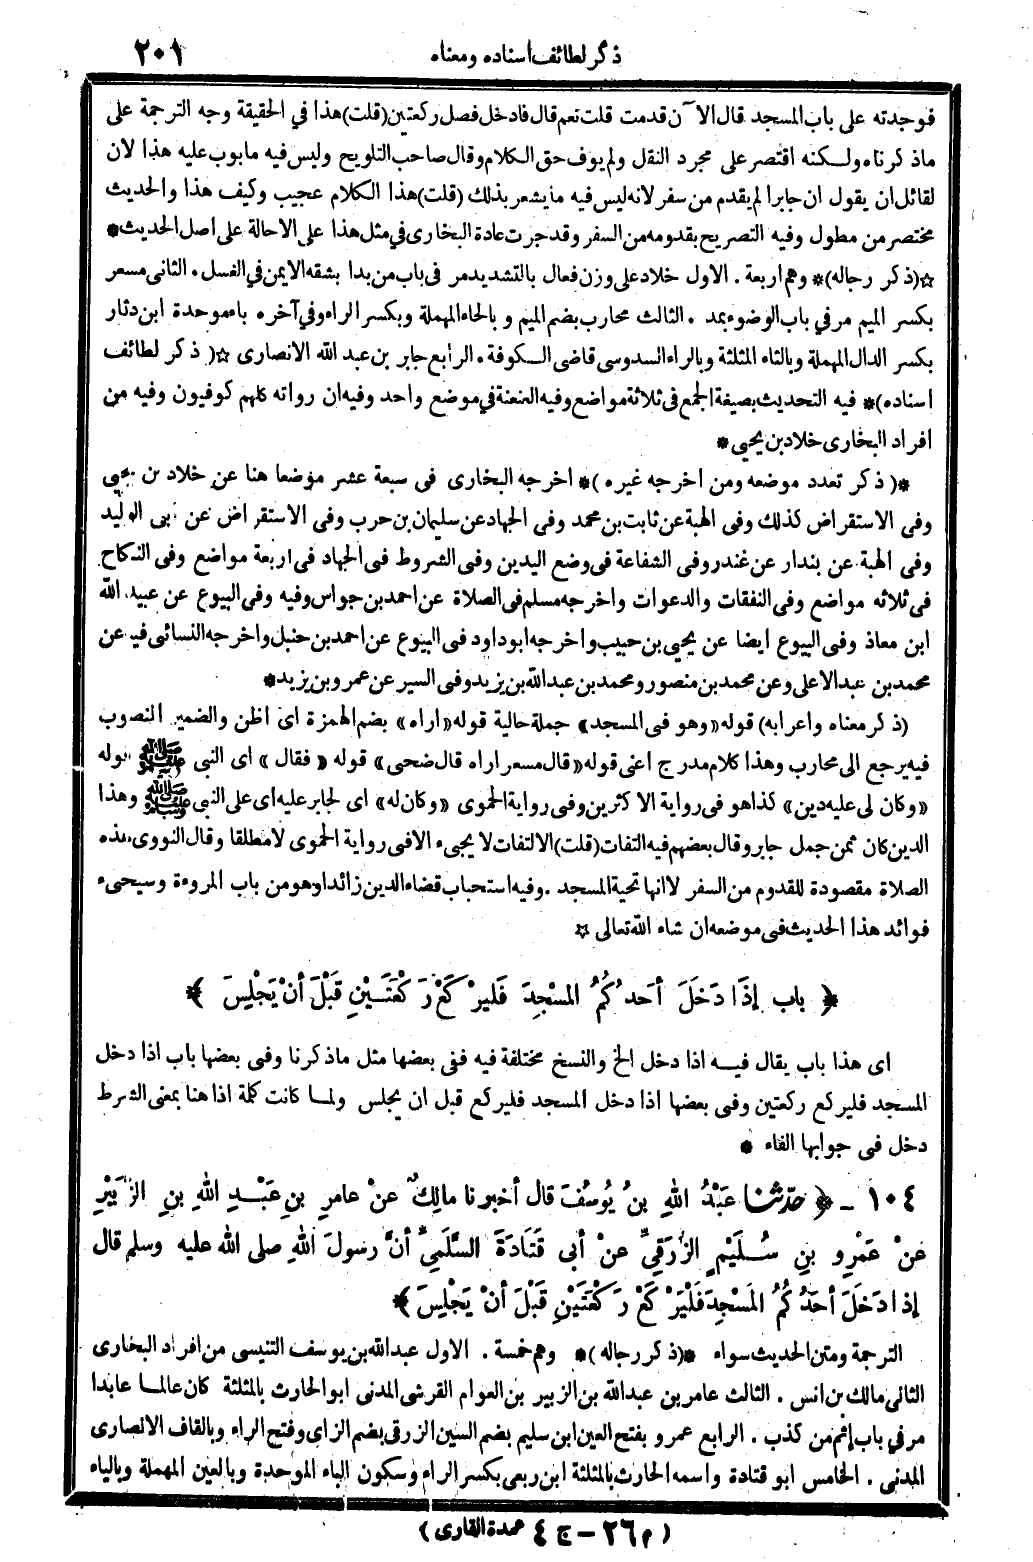 ذكر لطائف أسناده ومعناه ٢٠١
فوجدته على باب المسجد قال الآن قدمت قلت نعم قال فادخل فصل ركعتين (قلت) هذا في الحقيقة وجه الترجمة على
ماذكرناه ولكنه اقتصر على مجرد النقل ولم يوف حق الكلام وقال صاحب التلويح وليس فيه ما بوب عليه هذا لان
لقائل ان يقول ان جابرا لم يقدم من سفر لانه ليس فيه ما يشعر بذلك (قلت) هذا الكلام عجيب وكيف هذا والحديث
مختصر من مطول وفيه التصريح بقدومه من السفر وقد جرت عادة البخارى في مثل هذا على الاحالة على اصل الحديث *
☆(ذكر رجاله)* وهم اربعة . الاول خلاد على وزن فعال بالتشديد مر فى باب من بدا بشقه الايمن في الغسل . الثانى مسعر
بكسر الميم مر في باب الوضوء بمد . الثالث محارب بضم الميم وبالحاء المهملة وبكسر الراء وفي آخره باء موحدة ابن دثار
بكسر الدال المهملة وبالثاء المثلثة وبالراء السدوسى قاضى الكوفة . الرابع جابر بن عبد الله الانصارى ☆( ذكر لطائف
اسناده)* فيه التحديث بصيغة الجمع فى ثلاثة مواضع وفيه العنعنة في موضع واحد وفيه ان رواته كلهم كوفيون وفيه من
افراد البخارى خلاد بن يحيى *
*( ذكر تعدد موضعه ومن اخرجه غيره )* اخرجه البخارى فى سبعة عشر موضعا هنا عن خلاد بن يحيى
وفى الاستقراض كذلك وفى الهبة عن ثابت بن محمد وفى الجهاد عن سليمان بن حرب وفى الاستقراض عن ابى الوليد
وفى الهبة عن بندار عن غندر وفى الشفاعة فى وضع اليدين وفى الشروط فى الجهاد فى اربعة مواضع وفى النكاح
فى ثلاثه مواضع وفى النفقات والدعوات واخرجه مسلم فى الصلاة عن احمد بن جواس وفيه وفى البيوع عن عبيد الله
ابن معاذ وفى البيوع ايضا عن يحيى بن حبيب واخرجه ابو داود فى البيوع عن احمد بن حنبل واخرجه النسائى فيه عن
محمد بن عبد الاعلى وعن محمد بن منصور ومحمد بن عبد الله بن يزيد وفى السير عن عمرو بن يزيد *
(ذكر معناه واعرابه) قوله «وهو فى المسجد» جملة حالية قوله «اراه» بضم الهمزة اى اظن والضمير المنصوب
فيه يرجع الى محارب وهذا كلام مدرج اعنى قوله «قال مسعر اراه قال ضحى» قوله « فقال » اى النبى ﷺ قوله
«وكان لى عليه دين» كذا هو فى رواية الاكثرين وفى رواية الحموى «وكان له» اى لجابر عليه اى على النبى ﷺ وهذا
الدين كان ثمن جمل جابر وقال بعضهم فيه التفات (قلت) الالتفات لا يجىء الا فى رواية الحموى لا مطلقا وقال النووى هذه
الصلاة مقصودة للقدوم من السفر لا انها تحية المسجد . وفيه استحباب قضاء الدين زائدا وهو من باب المروءة وسيجىء
فوائد هذا الحديث فى موضعه ان شاء الله تعالى ☆
﴿ باب إِذَا دَخَلَ أَحَدُكُمُ المَسْجِدَ فَلْيَرْكَعْ رَكْعَتَيْنِ قَبْلَ أَنْ يَجْلِسَ ﴾
اى هذا باب يقال فيه اذا دخل الخ والنسخ مختلفة فيه ففى بعضها مثل ماذكرنا وفى بعضها باب اذا دخل
المسجد فليركع ركعتين وفى بعضها اذا دخل المسجد فليركع قبل ان يجلس ولما كانت كلمة اذا هنا بمعنى الشرط
دخل فى جوابها الفاء *
١٠٤ - ﴿ حدّثنا عَبْدُ اللهِ بنُ يُوسُفَ قال أخبرنا مالِكٌ عنْ عامرِ بنِ عَبْدِ اللهِ بنِ الزُّبَيْرِ
عنْ عَمْرِو بنِ سُلَيْمٍ الزُّرَقِىِّ عنْ أبى قَتَادَةَ السَّلَمِىِّ أنَّ رسولَ اللهِ صلى الله عليه وسلم قال
إذا دَخَلَ أحَدُكُمُ المَسْجِدَ فَلْيَرْكَعْ رَكْعَتَيْنِ قَبْلَ أنْ يَجْلِسَ ﴾
الترجمة ومتن الحديث سواء *(ذكر رجاله)* وهم خمسة . الاول عبد الله بن يوسف التنيسى من افراد البخارى
الثانى مالك بن انس . الثالث عامر بن عبد الله بن الزبير بن العوام القرشى المدنى ابو الحارث بالمثلثة كان عالما عابدا
مر في باب إثم من كذب . الرابع عمرو بفتح العين ابن سليم بضم السين الزرقى بضم الزاى وفتح الراء وبالقاف الانصارى
المدنى . الخامس ابو قتادة واسمه الحارث بالمثلثة ابن ربعى بكسر الراء وسكون الباء الموحدة وبالعين المهملة وبالياء
( م ٢٦ - ج ٤ عمدة القارى )